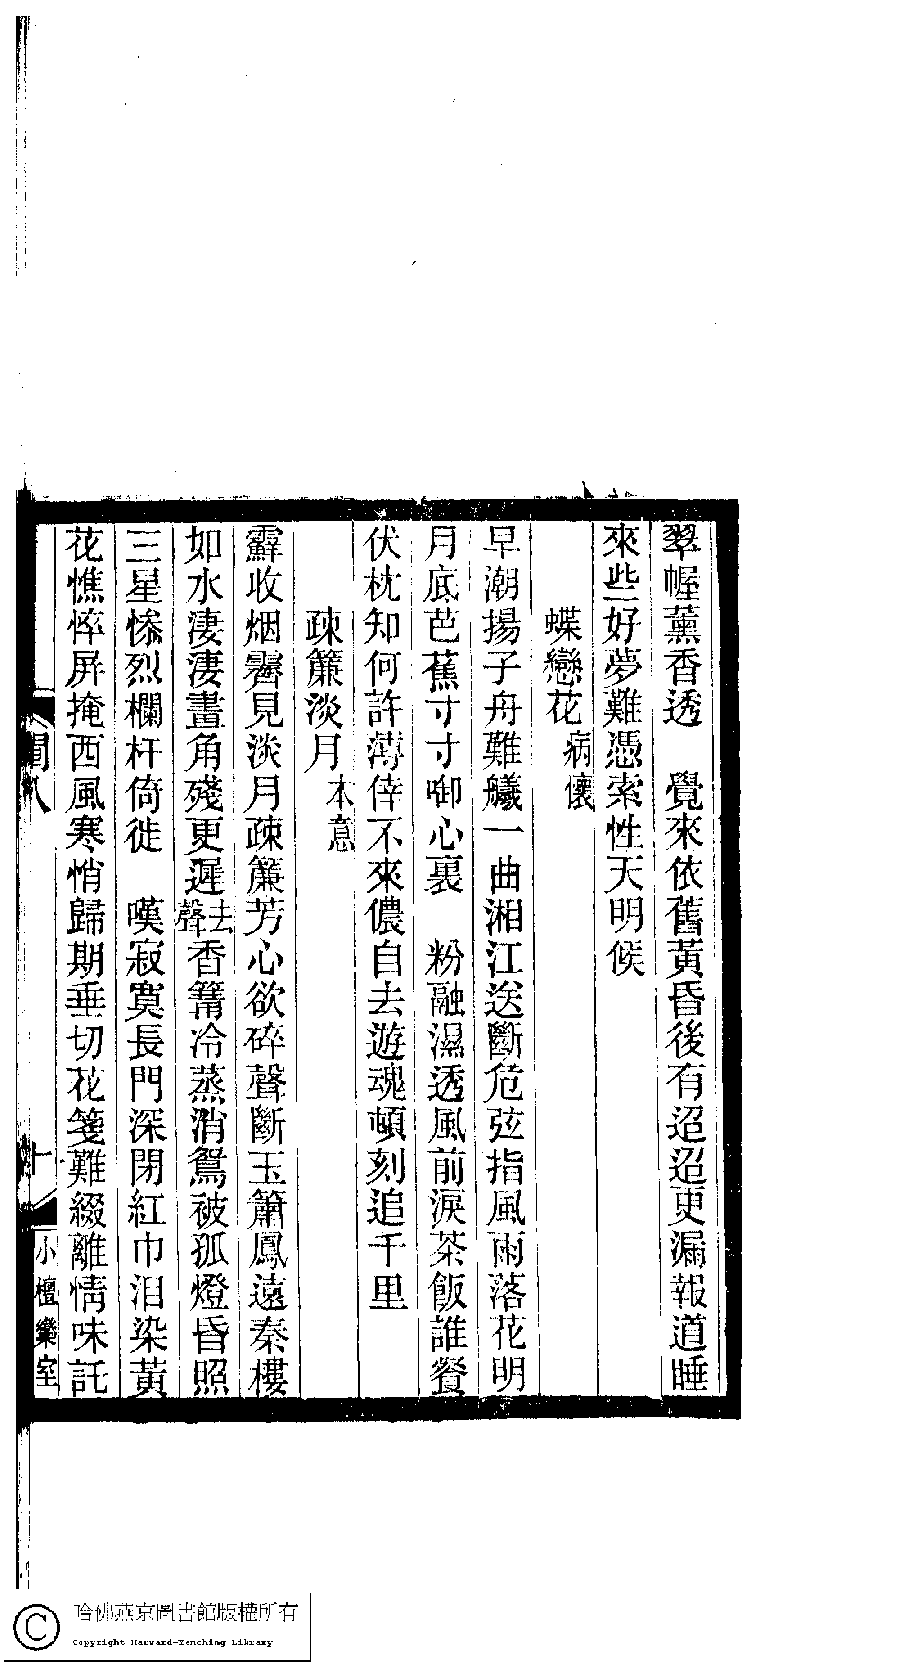 翠幄薰香透　覺來依舊黃昏後有迢迢更漏報道睡
來些好夢難憑索性天明候
蝶戀花病懷
早潮揚子舟難艤一曲湘江送斷危弦指風雨落花明
月底芭蕉寸寸啣心裏　粉融濕透風前淚茶飯誰餐
伏枕知何許薄倖不來儂自去遊魂頓刻追千里
疎簾淡月本意
霽收烟霽見淡月疎簾芳心欲碎聲斷玉簫鳳遠秦樓
如水淒淒畫角殘更遲去聲香篝冷蒸消鴛被孤燈昏照
三星慘烈欄杆倚徙　嘆寂寞長門深閉紅巾泪染黃
花憔悴屏掩西風寒悄歸期垂切花箋難綴離情味託
閨八
十
小檀欒室
哈佛燕京圖書館版權所有
Copyright Harvard-Yenching Library